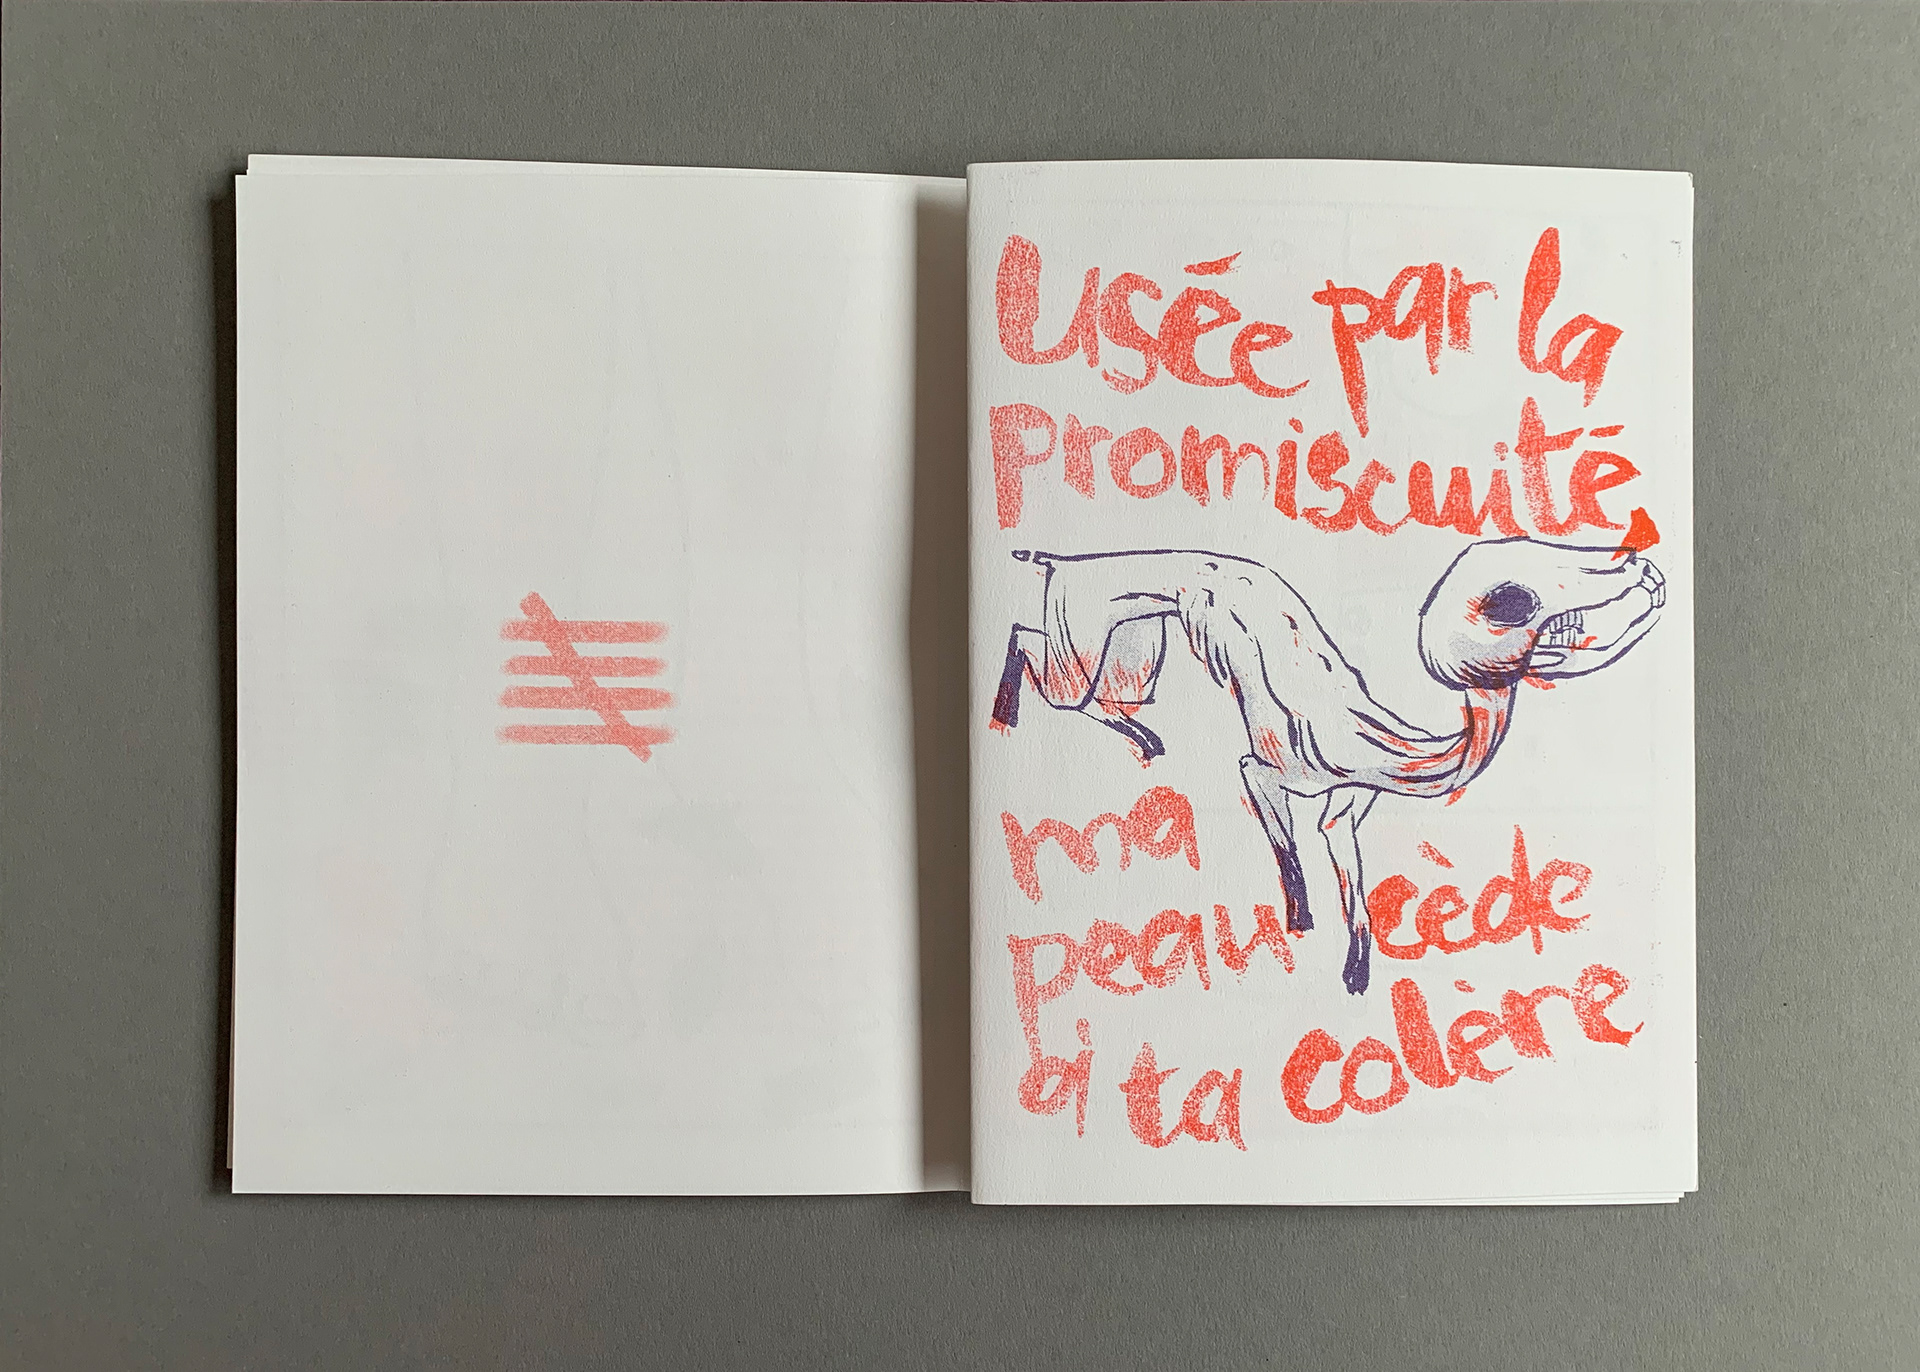 usée par la
promiscuité,
ma
peau cède
à ta colère